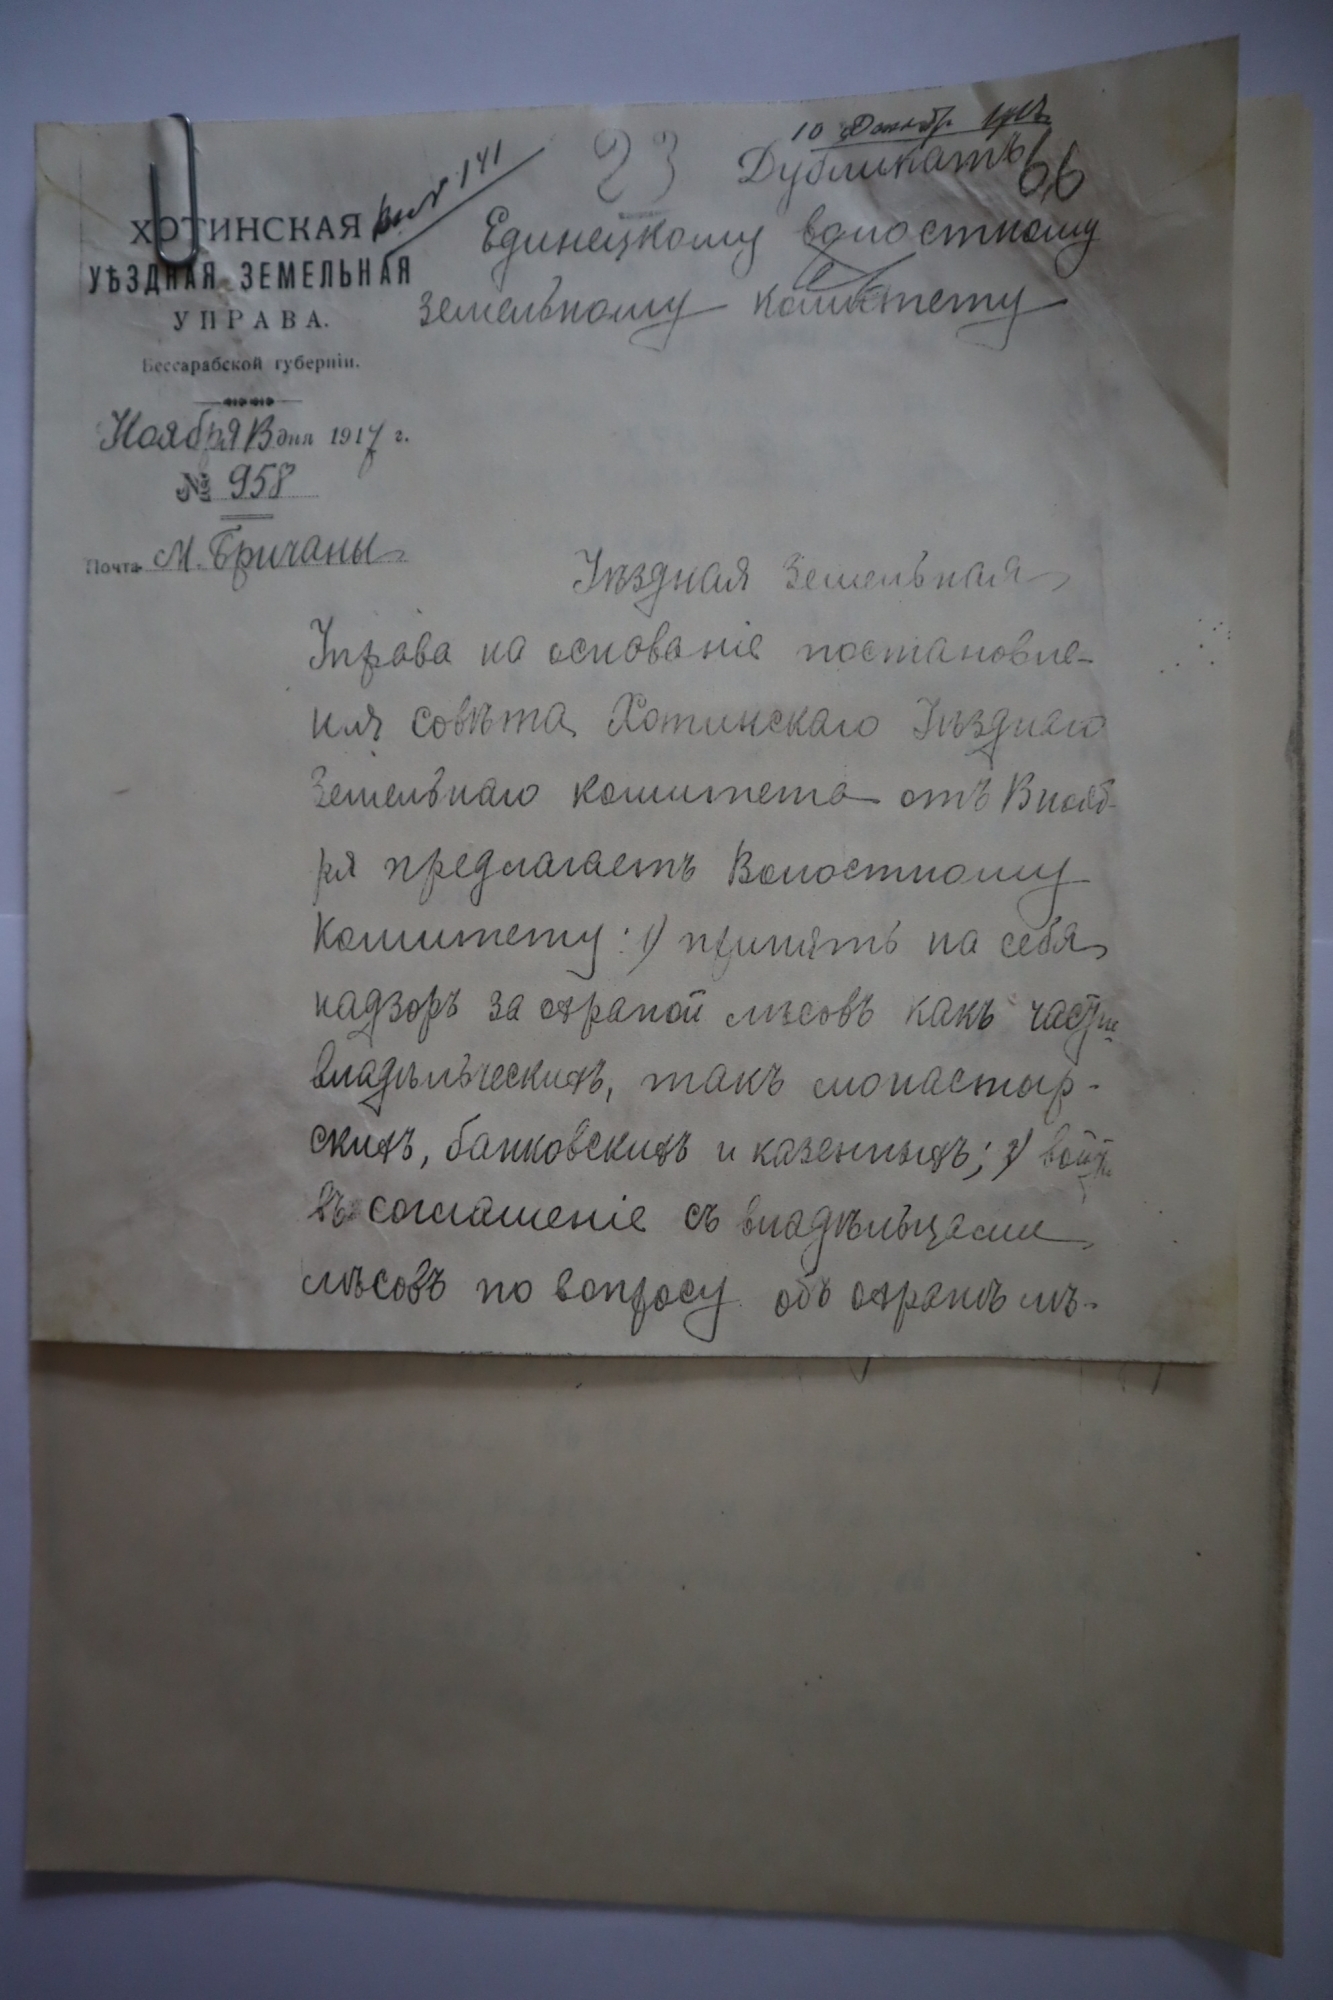 10 Декабр. 1917
23
Дубликатъ 66
ХОТИНСКАЯ
УѢЗДНАЯ ЗЕМЕЛЬНАЯ
УПРАВА.
Бессарабской губерніи.
141
Единецкому волостному
земельному комитету
Ноября 13 дня 1917 г.
№ 958
Почта М. Бричаны
Уѣздная Земельная
Управа на основаніе постановле-
нія совѣта Хотинскаго Уѣзднаго
Земельнаго комитета отъ 13 нояб-
ря предлагаетъ Волостному
Комитету: 1) принять на себя
надзоръ за охраной лѣсовъ какъ частно
владѣльческихъ, такъ монастыр-
скихъ, банковскихъ и казенныхъ; 2) войти
въ соглашеніе съ владѣльцами
лѣсовъ по вопросу объ охранѣ лѣ-